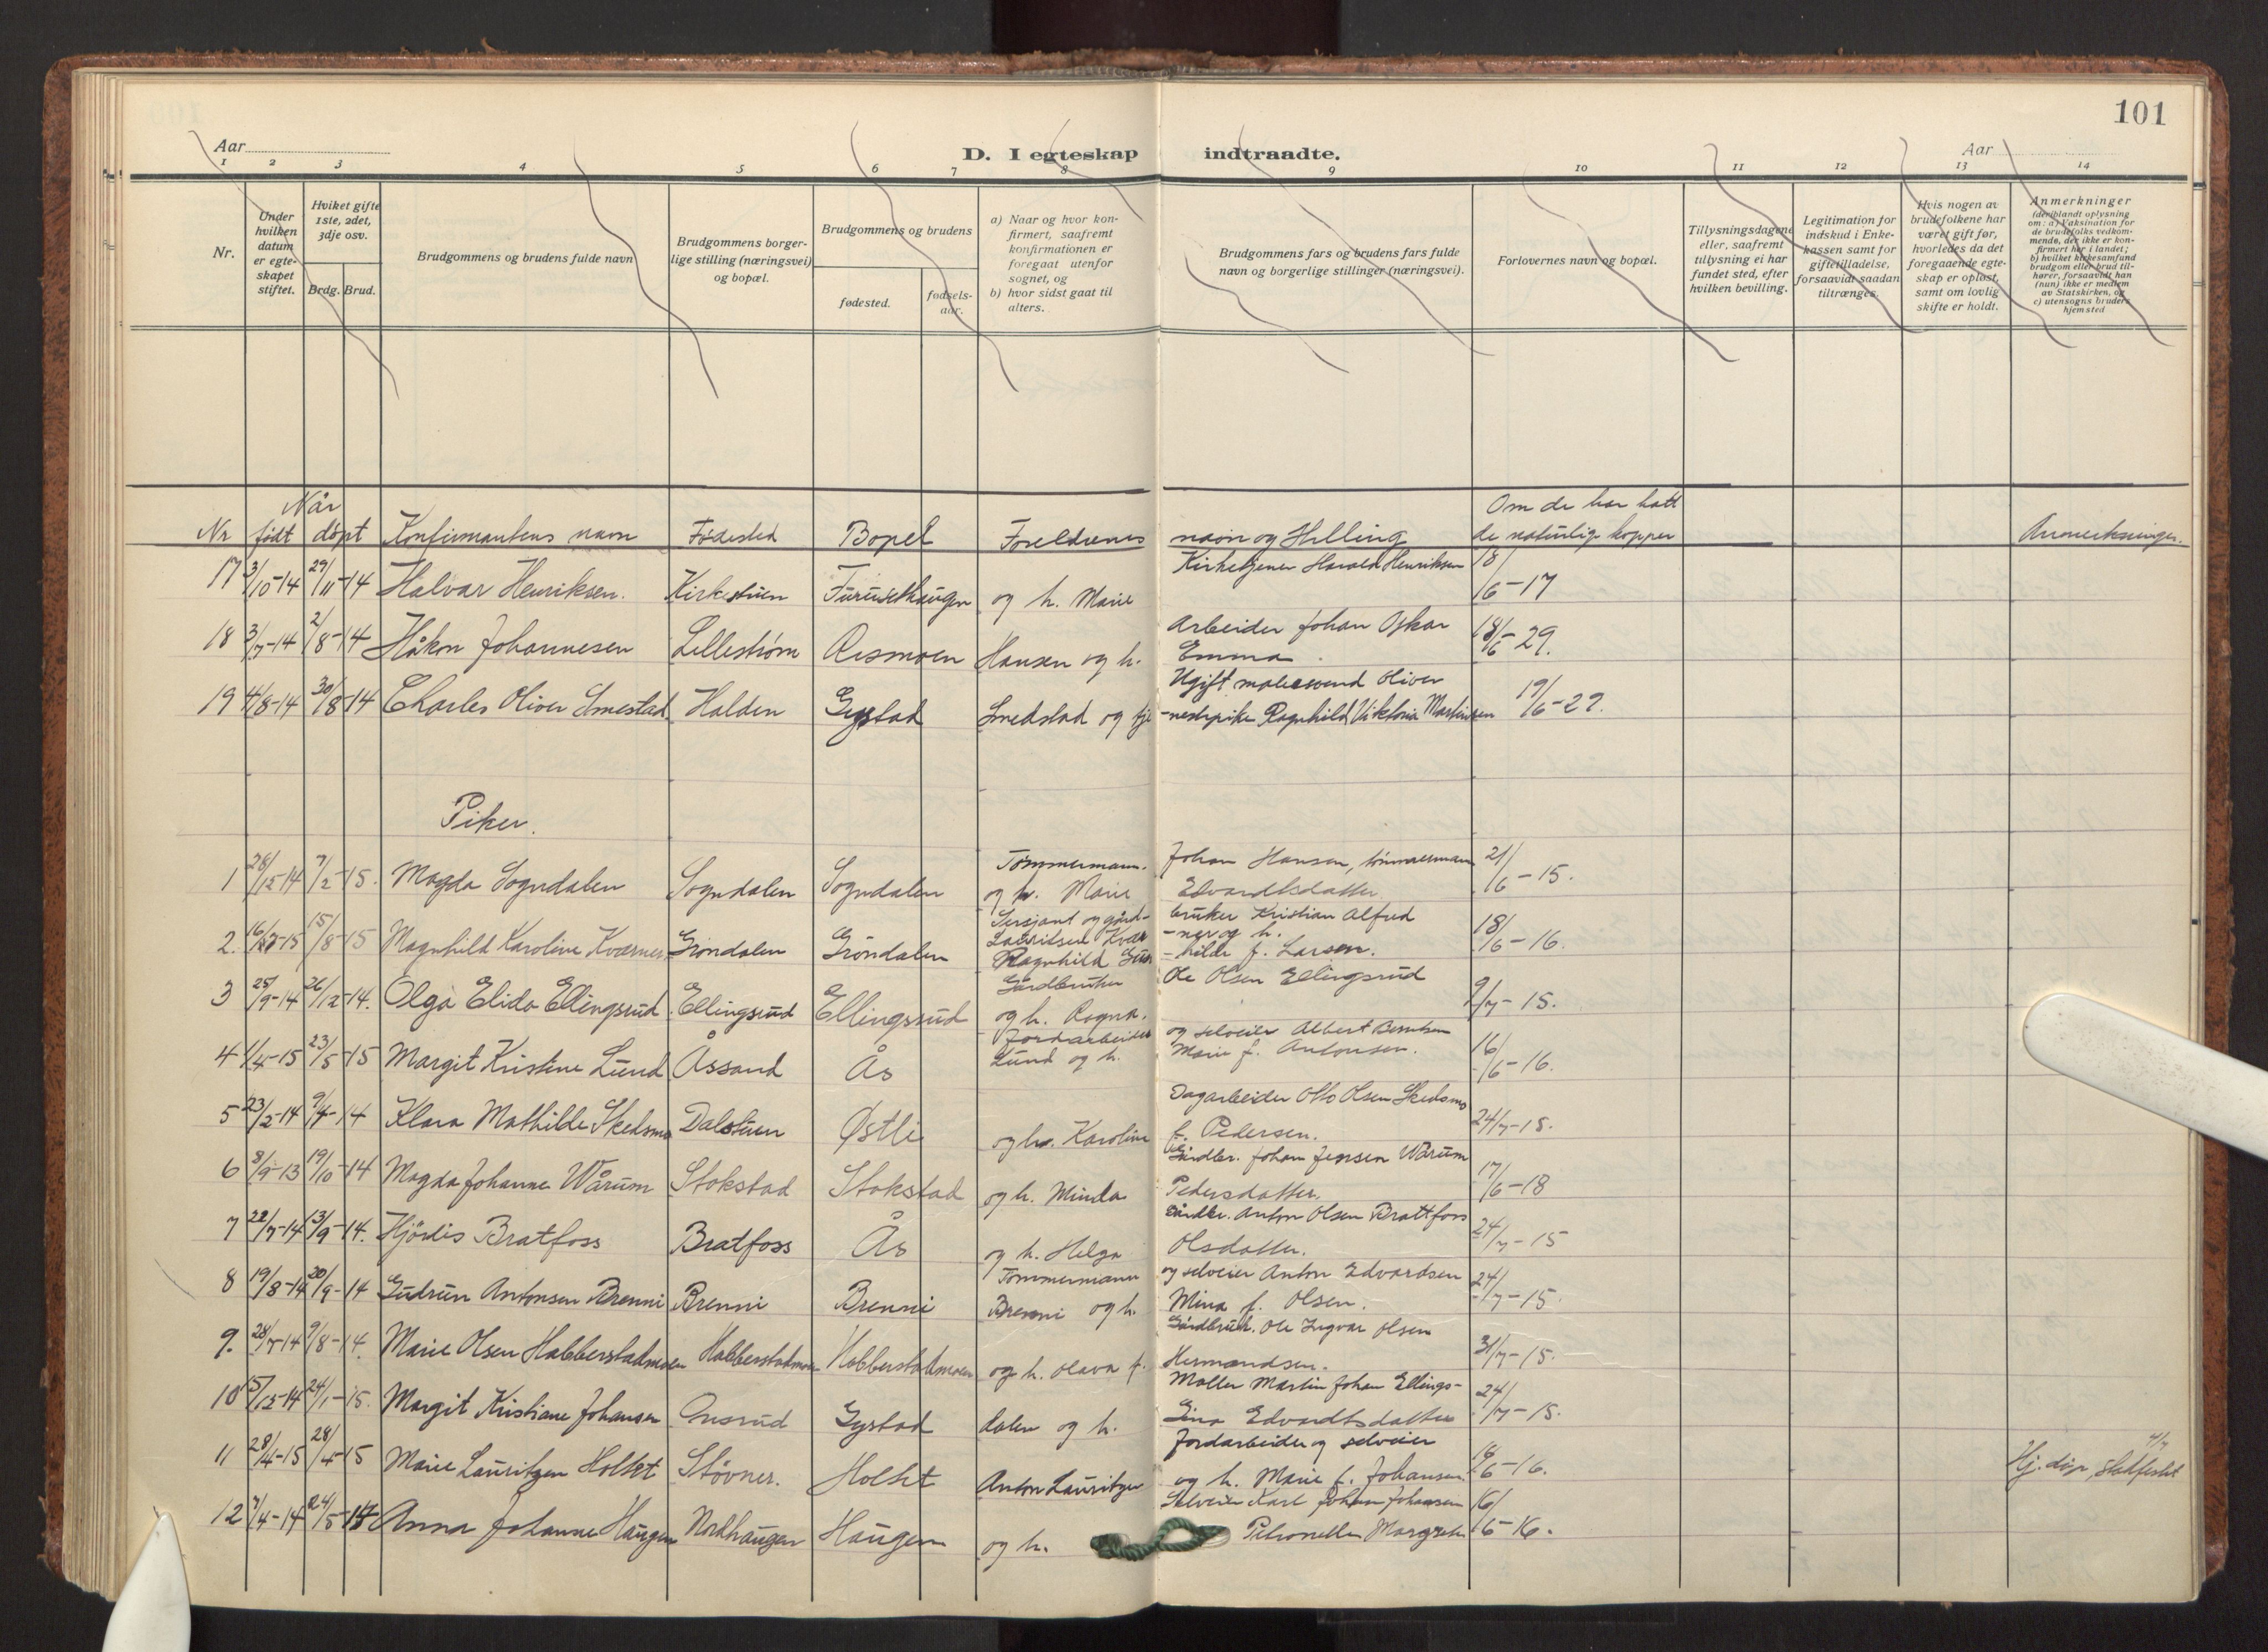 101
Aar
D. I egteskap indtraadte.
Aar
1 2 3 4 5 6 7 8 9 10 11 12 13 14
Nr.
Under hvilken datum er egteskapet stiftet.
Hviket gifte 1ste, 2det, 3dje osv.
Brdg. Brud.
Brudgommens og brudens fulde navn
Brudgommens borgerlige stilling (næringsvei) og bopæl.
Brudgommens og brudens
fødested.
fødselsaar.
a) Naar og hvor konfirmert, saafremt konfirmationen er foregaat utenfor sognet, og
b) hvor sidst gaat til alters.
Brudgommens fars og brudens fars fulde navn og borgerlige stillinger (næringsvei).
Forlovernes navn og bopæl.
Tillysningsdagene eller, saafremt tillysning ei har fundet sted, efter hvilken bevilling.
Legitimation for indskud i Enkekassen samt for giftetilladelse, forsaavidt saadan tiltrænges.
Hvis nogen av brudefolkene har været gift før, hvorledes da det foregaaende egteskap er opløst, samt om lovlig skifte er holdt.
Anmerkninger
(deriblandt oplysning om: a) Vaksination for de brudefolks vedkommende, der ikke er konfirmert her i landet; b) hvilket kirkesamfund brudgom eller brud tilhører, forsaavidt han (hun) ikke er medlem av Statskirken, og c) utensogns bruders hjemsted
Nr Når født døpt Konfirmantens navn Fødested Bopel Foreldrenes navn og stilling Om de har hatt de naturlige kopper Anmerkninger.
17 3/10-14 29/11-14 Halvar Henriksen. Kirkestuen Furusethaugen Kirketjener Harald Henriksen og h. Marie 18/6-17
18 3/7-14 2/8-14 Håkon Johannesen Lillestrøm Rismoen Arbeider Johan Oskar Hansen og h. Emma 18/6-29.
19 4/8-14 30/8-14 Charles Oliver Smestad Halden Gystad Ugift malersvend Oliver Smedstad og tje-nestepike Ragnhild Viktoria Martinsen 19/6-29.
Piker.
1 28/12-14 7/2-15. Magda Sogndalen Sogndalen Sogndalen Tømmermann. Johan Hansen, tømmermann og h. Marie Edvardtsdatter 21/6-15.
2. 15/8-15 Magnhild Karoline Kværner Grøndalen Grøndalen Sersjant og gård-bruker Kristian Alfred Lauritsen Kvær-ner og h. Ragnhild Gunhilde f. Larsen. 18/6-16.
3 25/9-14 26/12-14. Olga Elida Ellingsrud Ellingsrud Ellingsrud Gårdbruker Ole Olsen Ellingsrud og h. Ragna. 9/7-15.
4 1/4-15 23/5-15 Margit Kristine Lund Åssand Ås Jordarbeider og selveier Albert Berntsen Lund og h. Marie f. Antonsen. 16/6-16.
5 23/2-14 9/4-14 Klara Mathilde Skedsmo Dalstuen Østli Dagarbeider Otto Olsen Skedsmo og h. Karoline f. Pedersen. 24/7-15.
6 8/9-13 19/10-14 Magda Johanne Wårum Stokstad Stokstad Gårdbr. Johan Jensen Wårum og h. Minda Pedersdatter. 17/6-18
7 22/7-14 13/9-14. Hjördis Bratfoss Bratfoss Ås Gårdbr. Anton Olsen Brattfoss og h. Helga Olsdatter. 24/7-15
8 19/8-14 20/9-14 Gudrun Antonsen Brenni Brenni Brenni Tømmermann og selveier Anton Edvardsen Brenni og h. Mina f. Olsen. 24/7-15.
9. 9/8-14. Marie Olsen Habberstadmoen Habberstadmoen Habberstadmoen Gårdbruk. Ole Ingvar Olsen og h. Olava f. Hermandsen. 31/7-15.
10 5/12-14 24/1-15. Margit Kristiane Johansen Onsrud Gystad Møller Martin Johan Ellings-dalen og h. Gina Edvardtsdatter 24/7-15.
11 28/4-15 Marie Lauritzen Holset Støvner. Holset Jordarbeider og selveier Anton Lauritzen og h. Marie f. Johansen 18/6-16. Hj. døp stadfestet
12 7/4-14 24/5-14 Anna Johanne Haugen Nordhaugen Haugen Selveier Karl Johan Johansen og h. Petronelle Margrete 16/6-16.